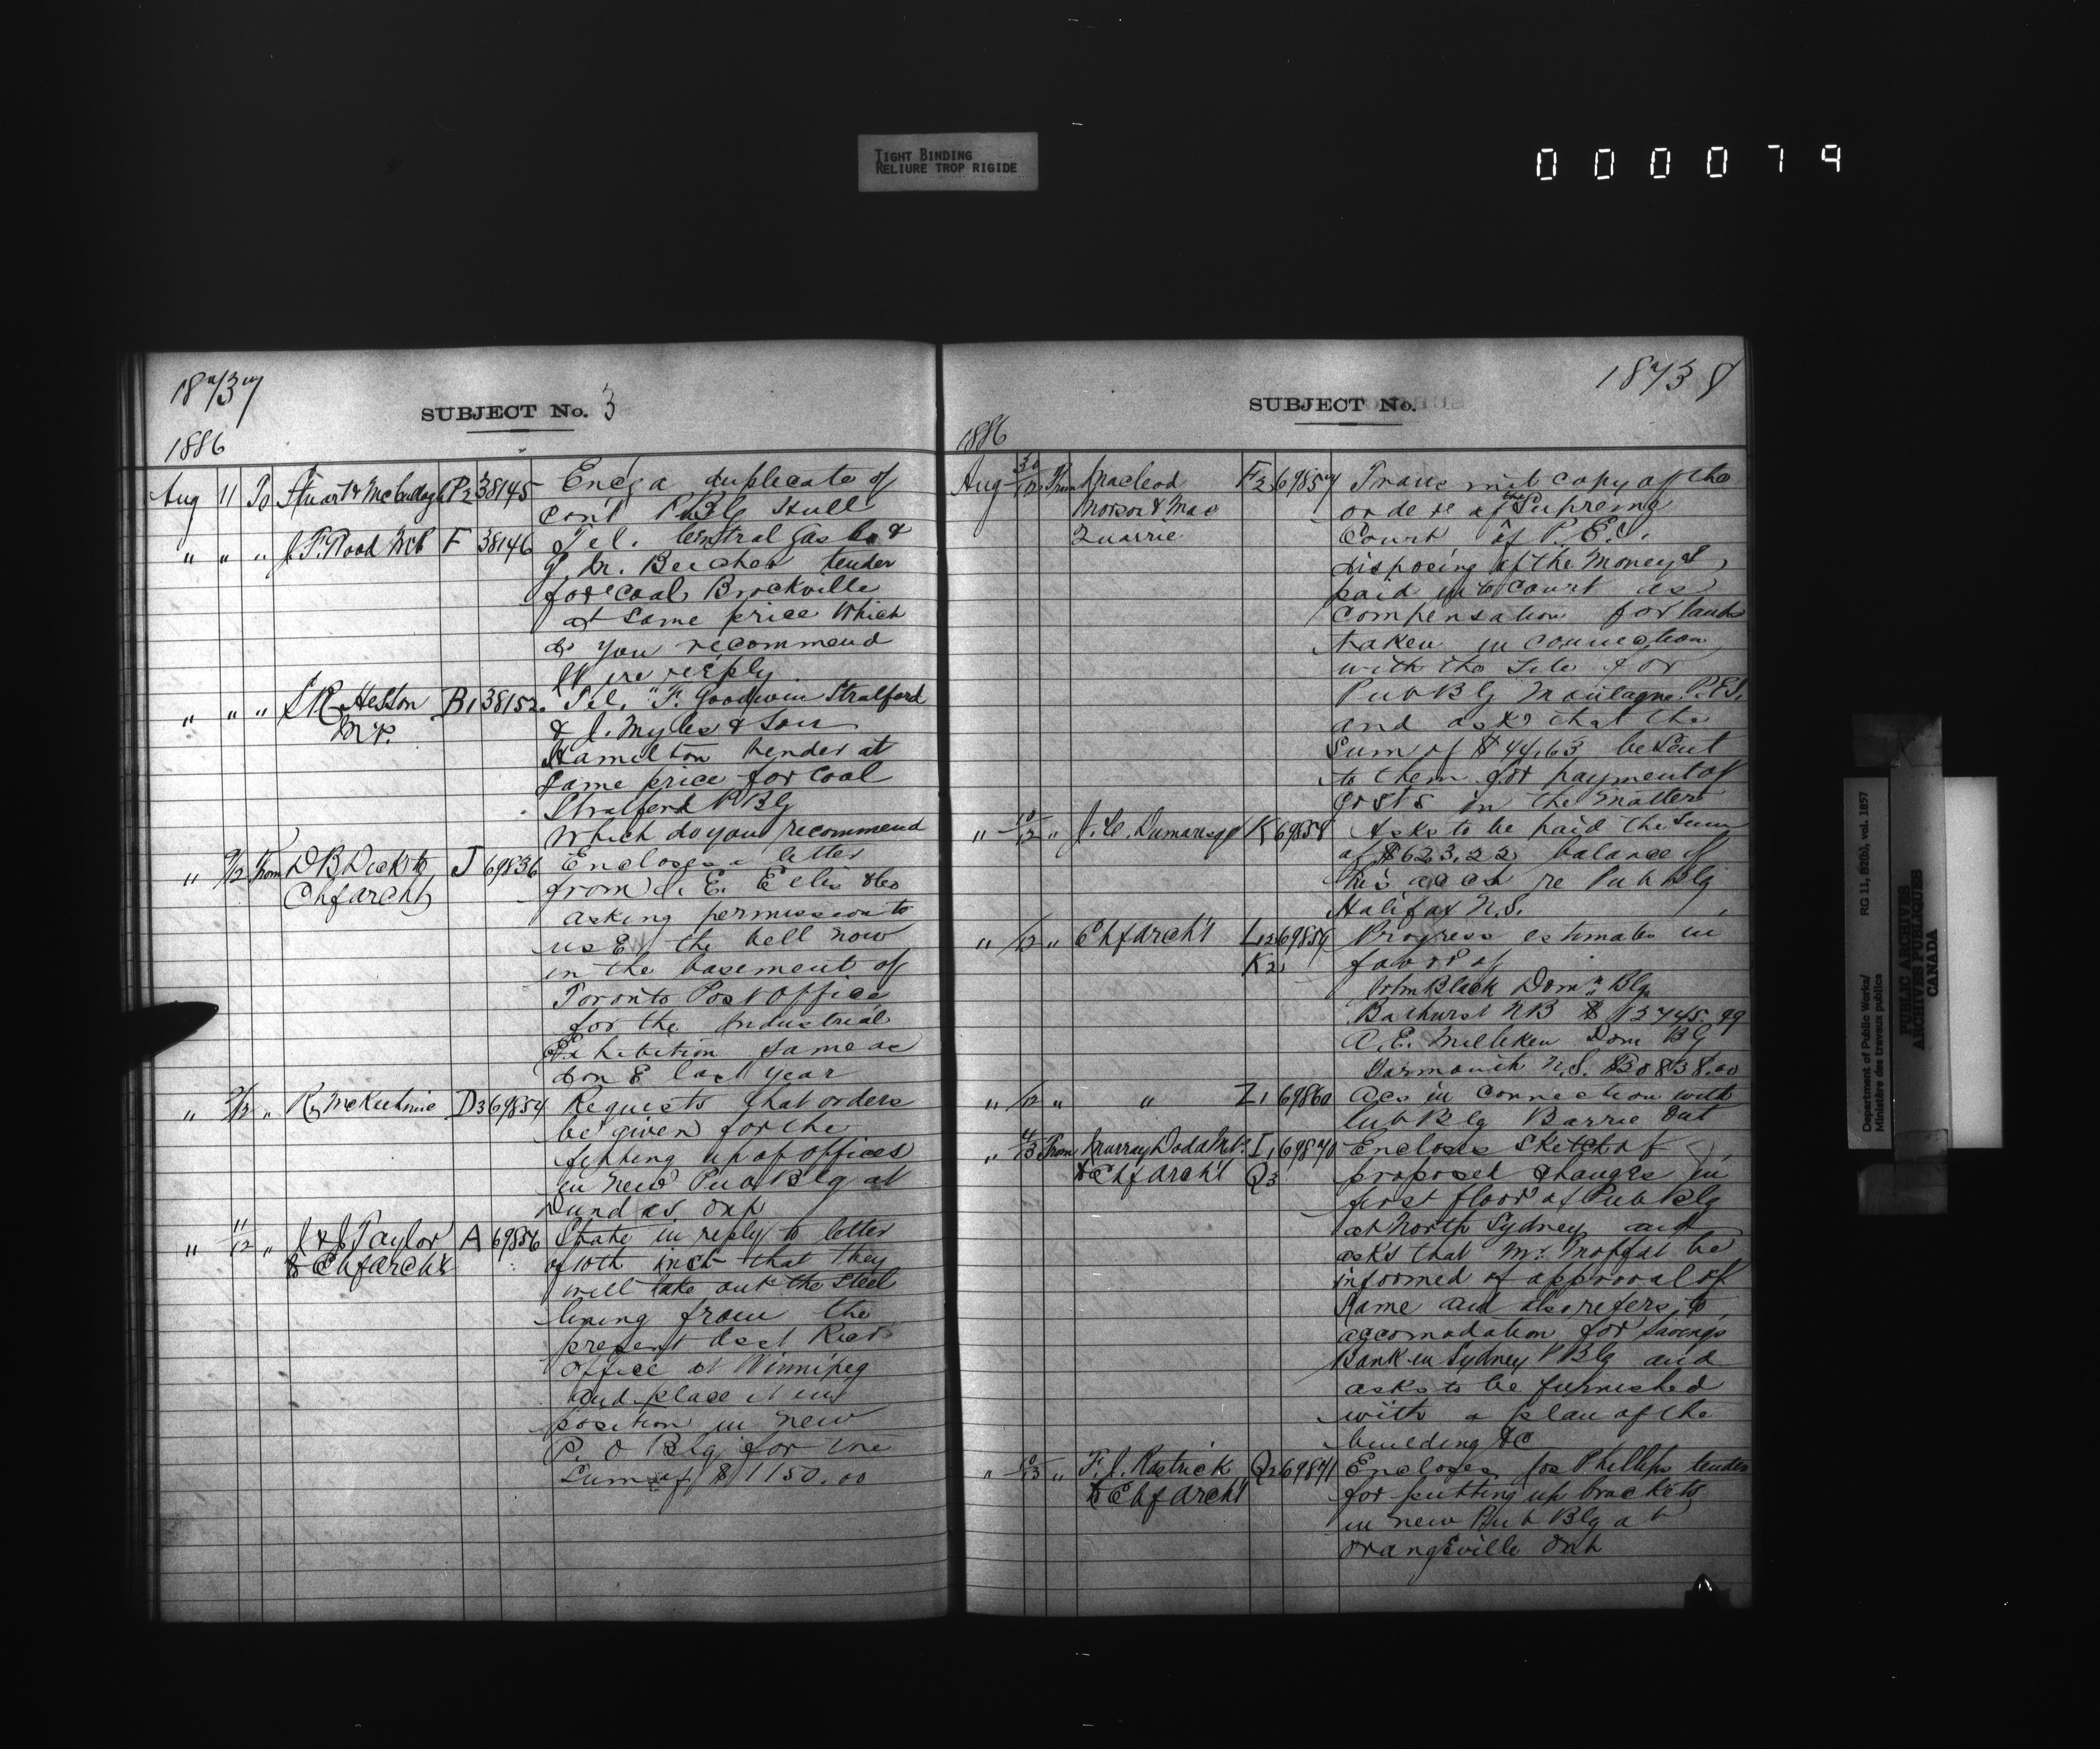 TIGHT BINDING
RELIURE TROP RIGIDE
000079
18737
SUBJECT No. 3
1886
Aug 11 To Stuart & McCullogh P2 38145 Encg a duplicate of
cont PBlg Hull
" " " J. F. Wood MP F 38146 Tel. Central Gas Co &
tender
for coal Brockville
at same price Which
do you recommend
Wire reply
" " " S R Hesson B1 38152 Tel. "F. Goodwin Stratford
M.P. & J. Myles & Son
Hamilton tender at
same price for coal
Stratford P Blg
Which do you recommend
" 9/12 From D B Dick to J 69836 Encloses a letter
Chf Archt from J. E. Ellis & Co
asking permission to
use the bell now
in the basement of
Toronto Post Office
for the Industrial
Exhibition same as
done last year
" 9/12 " R. McKechnie D3 69854 Requests that orders
be given for the
fitting up of offices
in new Pub Blg at
Dundas Ont
" 11/12 " J & J Taylor A 69856 State in reply to letter
to Chf Archt of 10th inst that they
will take out the steel
lining from the
present Asst Recr
Office at Winnipeg
and place it in
position in new
P. O Blg for the
Sum of $1150.00
18738
SUBJECT No.
1886
Aug 30/12 From Macleod F2 69857 Transmit copy of the
Morson & Mac order of the Supreme
Quarrie Court of P. E. I.
disposing of the Moneys
paid into Court as
compensation for lands
taken in connection
with the site for
Pub Blg Montague P.E.I.
and asks that the
Sum of $44.63 be sent
to them for payment of
costs in the matter
" 10/12 " J. C. Dumaresq K 69858 Asks to be paid the sum
of $623.22 balance of
his acct re Pub Blg
Halifax N.S.
" /12 " Chf Archt L12 69859 Progress estimates in
K2 favor of
John Black Domn Blg
Bathurst NB $12745.99
A. E. Milliken Dom Blg
Yarmouth N.S. $30838.00
" /12 " " Z1 69860 Acs in connection with
Pub Blg Barrie Ont
" /13 From Murray Dodd MP. I1 69870 Encloses sketch of
to Chf Archt Q3 proposed changes in
first floor of Pub Blg
at North Sydney and
asks that Mr. Moffat be
informed of approval of
same and also refers to
accomodation for Savings
Bank in Sydney P Blg and
asks to be furnished
with a plan of the
building &c
" 10/13 " F. J. Rastrick Q2 69871 Encloses Jos Phillips tender
to Chf Archt for putting up brackets
in new Pub Blg at
Orangeville Ont
Department of Public Works/
Ministère des travaux publics
RG 11, B2(b), vol. 1857
PUBLIC ARCHIVES
ARCHIVES PUBLIQUES
CANADA